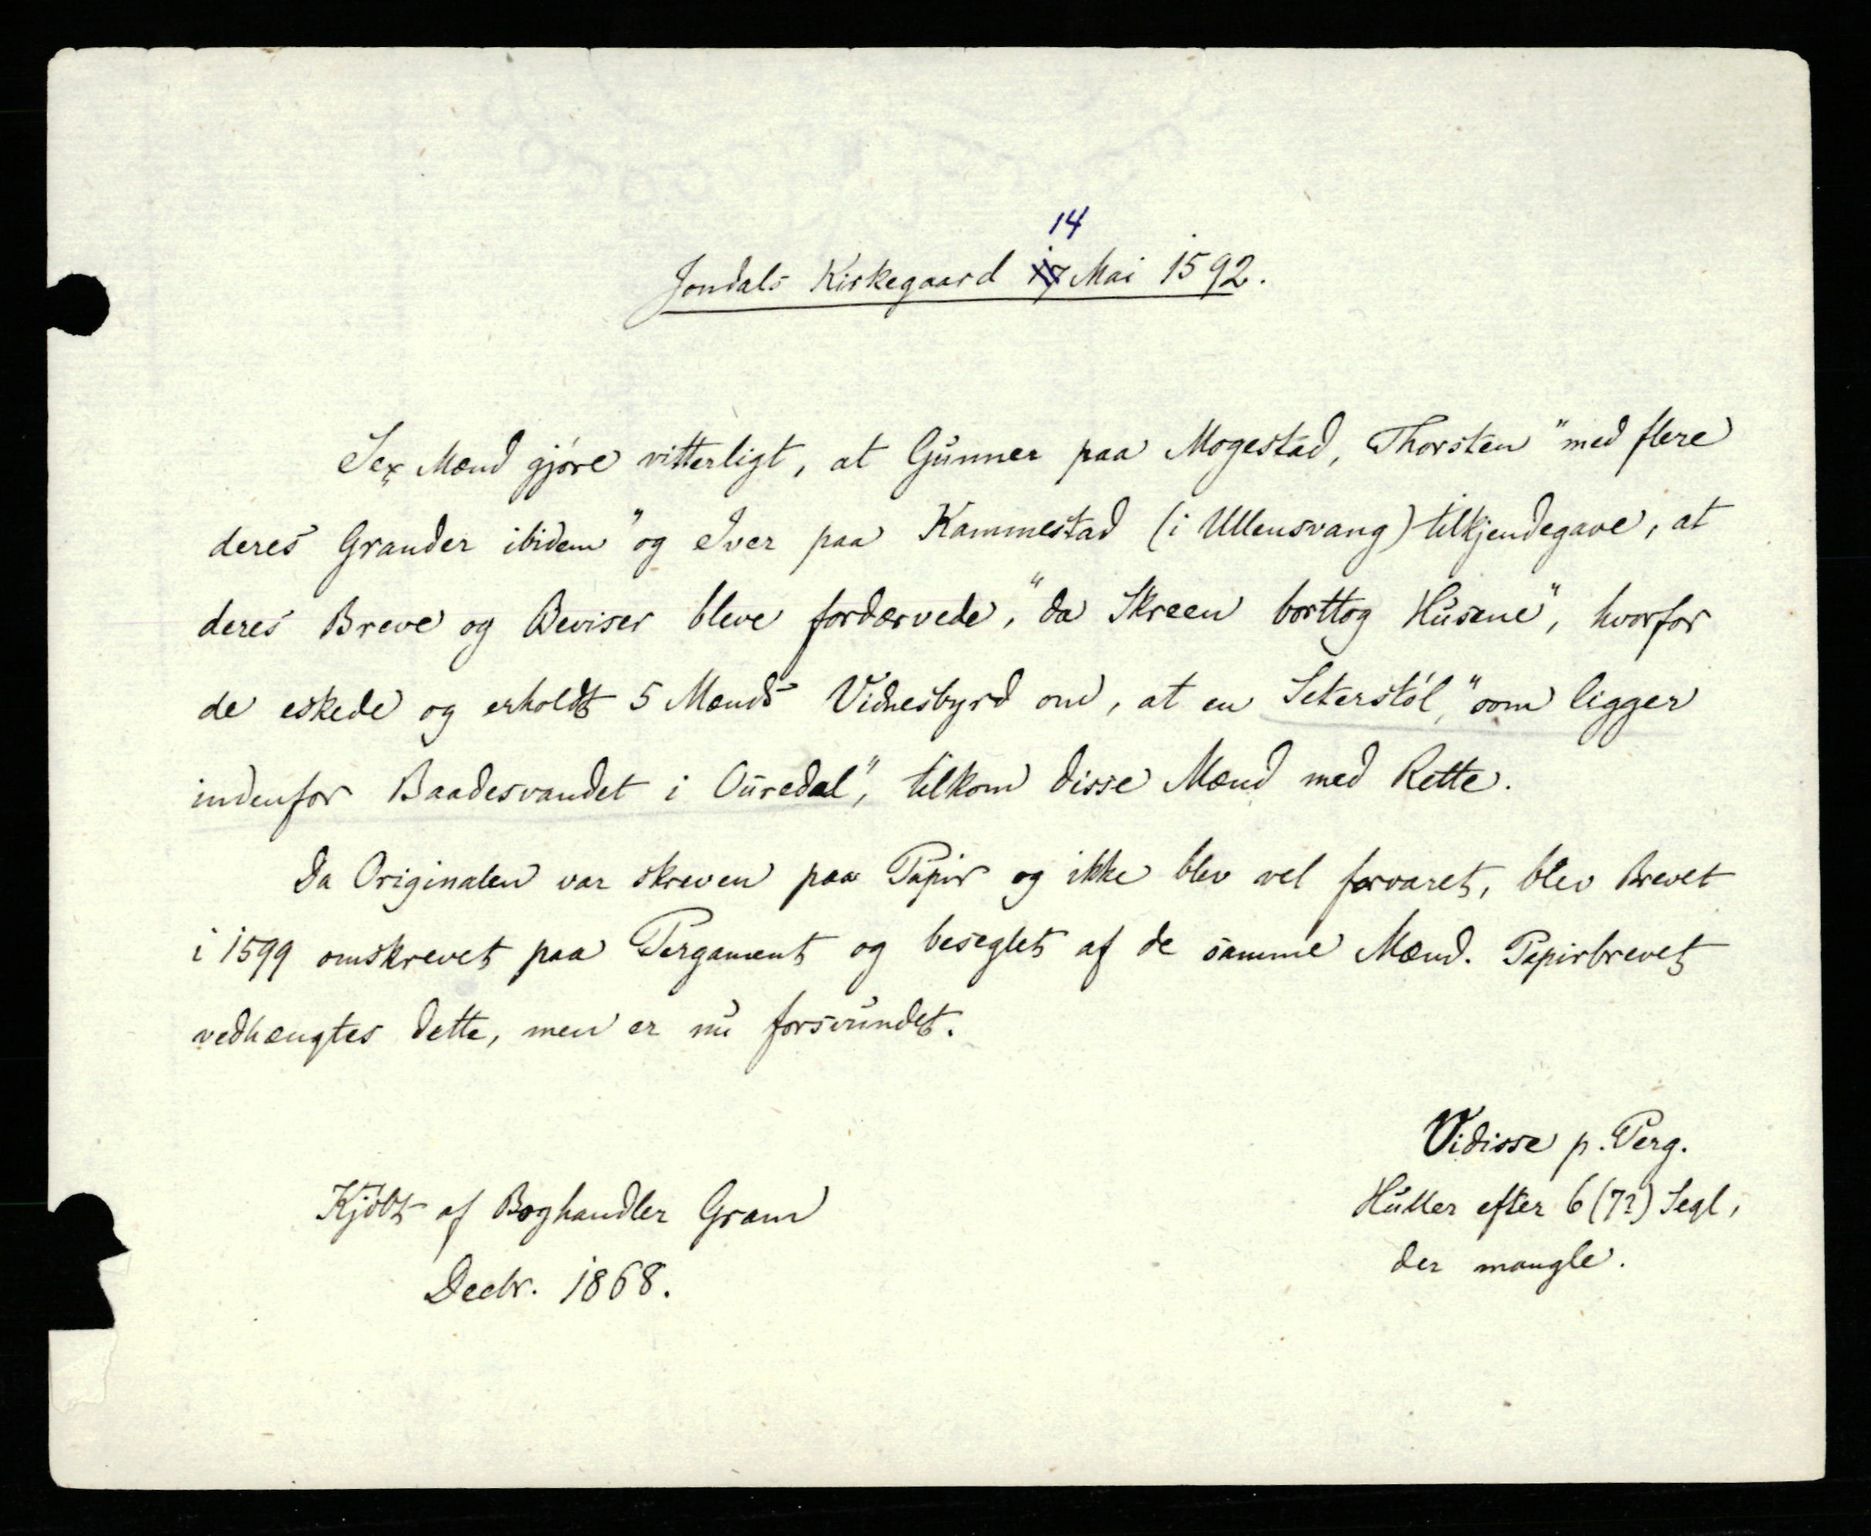 14
Jondals Kirkegaard 17 Mai 1592.
Sex Mænd gjöre vitterligt, at Gunner paa Mogestad, Thorsten "med flere
deres Grander ibidem" og Iver paa Kammestad (i Ullensvang) tilkjendegave, at
deres Breve og Beviser bleve fordærvede, "da Skreen borttog Husene", hvorfor
de eskede og erholdt 5 Mænds Vidnesbyrd om, at en Seterstöl, "som ligger
indenfor Baadesvandet i Ouredal", tilkom disse Mænd med Rette.
Da Originalen var skreven paa Papir og ikke blev vel forvaret, blev Brevet
i 1599 omskrevet paa Pergament og beseglet af de samme Mænd. Papirbrevet
vedhængtes dette, men er nu forsvundet.
Vidisse p. Perg.
Huller efter 6 (7?) Segl,
der mangle.
Kjöbt af Boghandler Gram
Decbr. 1868.